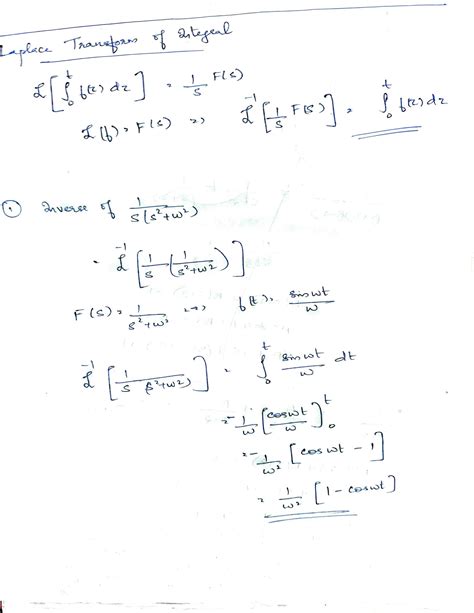 Laplace Transform of Integral
L[∫₀ᵗ f(z) dz] = 1/s F(s)
L(f) = F(s) => L⁻¹[1/s F(s)] = ∫₀ᵗ f(z) dz
① Inverse of 1/s(s²+ω²)
= L⁻¹[1/s (1/s²+ω²)]
F(s) = 1/s²+ω² => f(t) = sinωt/ω
L⁻¹[1/s (s²+ω²)] = ∫₀ᵗ sinωt/ω dt
= -1/ω [cosωt/ω]₀ᵗ
= -1/ω² [cosωt - 1]
= 1/ω² [1 - cosωt]